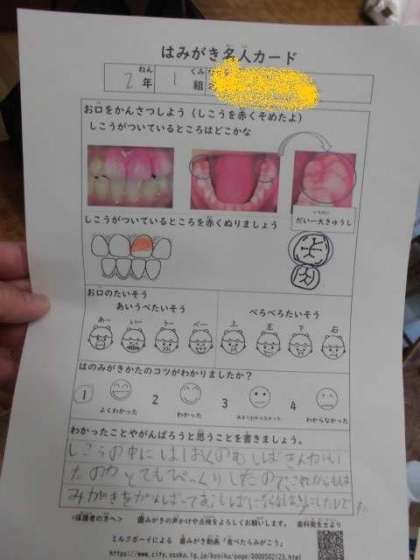 はみがき名人カード
ねん くみ
2年 1組
お口をかんさつしよう（しこうを赤くそめたよ）
しこうがついているところはどこかな
だい一大きゅうし
しこうがついているところを赤くぬりましょう
お口のたいそう
あいうべたいそう べろべろたいそう
あー いー うー べー 上 左 下 右
はのみがきかたのコツがわかりましたか？
1 2 3 4
よくわかった わかった わからなかった
わかったことやがんばろうと思うことを書きましょう。
しこうの中には
いたのがとてもびっくりしたのでこれからもは
みがきをがんばって
＜保護者の方へ＞ 歯みがきの声かけや点検をよろしくお願いします。 歯科衛生士より
ミルクボーイによる 歯みがき動画「食べたらみがこう」